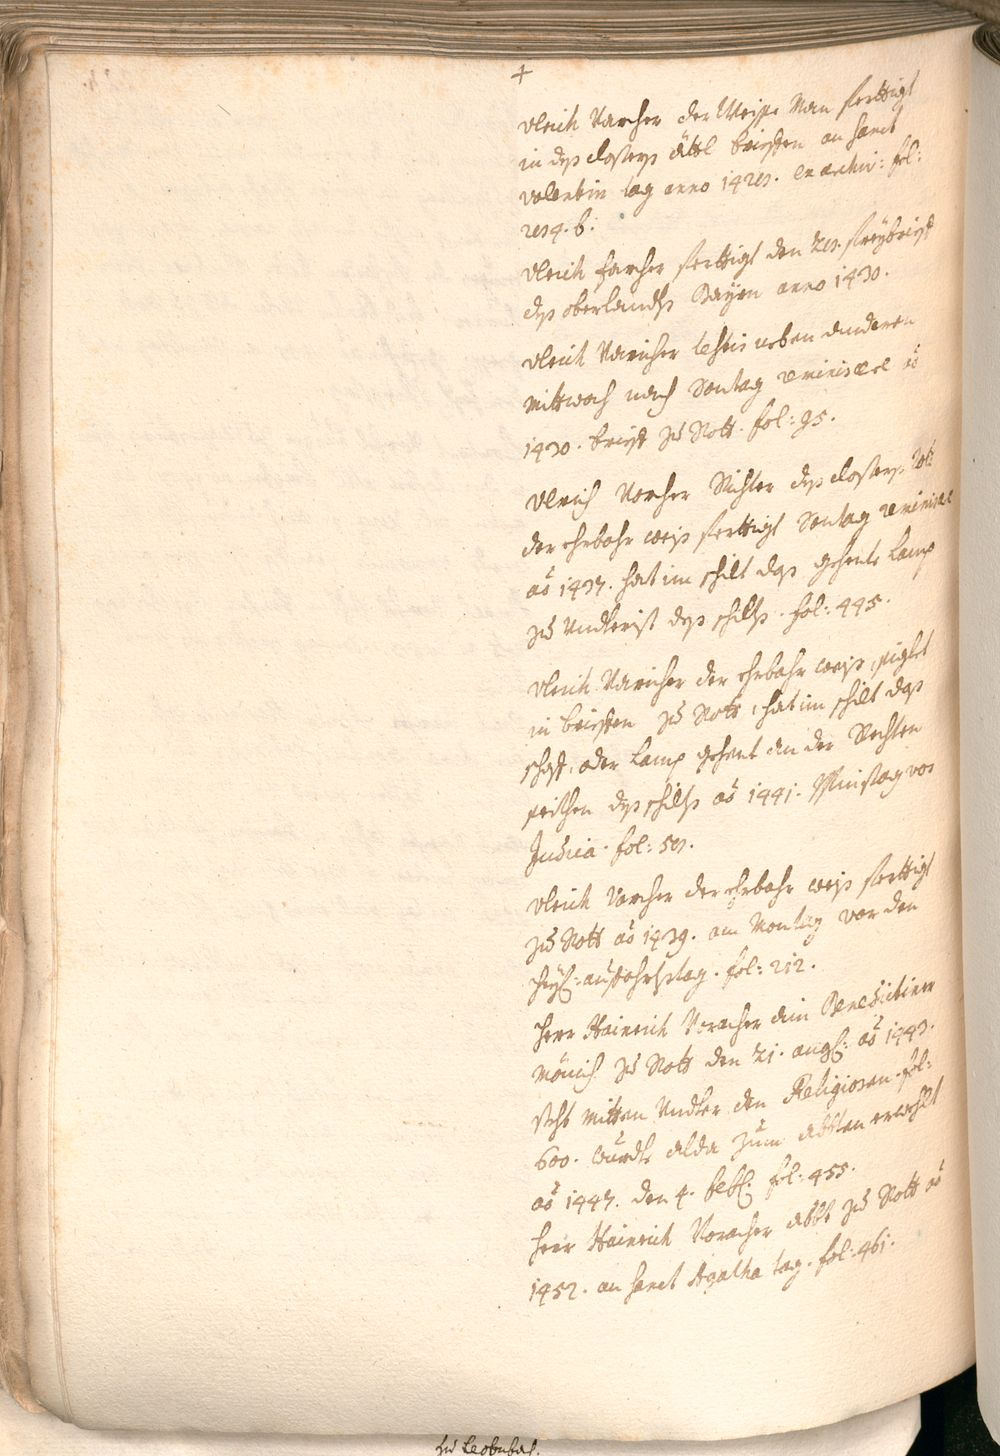 +
Vlrich Varcher der Weise Man ferttigt
in dess Closters Ättl brieffen an sanct
Valentin tag anno 142es. ex archiv: fol:
b:
Vlrich farcher ferttigt den freybrieff
dess oberlandts Bayrn anno 1430.
Vlrich Varicher neben anderen
Mittwoch nach Sontag reminiscere aō
1430. brieff zu Rott. fol: 95.
Vlrich Vorcher Richter dess Closters Rott
der ehrbahr weiss ferttigt Sontag reminiscere
aō 1437. hat im schilt dass gehent Lamp
zu Vndterist dess schilts. fol: 445.
Vlrich Varicher der ehrbahr weiss, siglet
in brieffen zu Rott, hat im schilt dass
schaff, oder Lamp gehent an der Rechten
seithen dess schilts aō 1441. Pfinstag vor
Judica. fol:
Vlrich Varcher der ehrbahr weiss ferttigt
zu Rott aō 1439. am Montag vor den
heyl: auffahrtstag. fol: 212.
Herr Hainrich Voracher ain Benedictiner
Mönich zu Rott den 21. aug: aō 1443.
steht mitten Vndter den Religiosen. fol:
600. wurdt alda zum abbten erwehlt
aō 1447. den 4. feb: fol: 455.
Herr Hainrich Voracher abbt zu Rott aō
1452. an sanct Agatha tag. fol: 461.
zu Leobnbach.